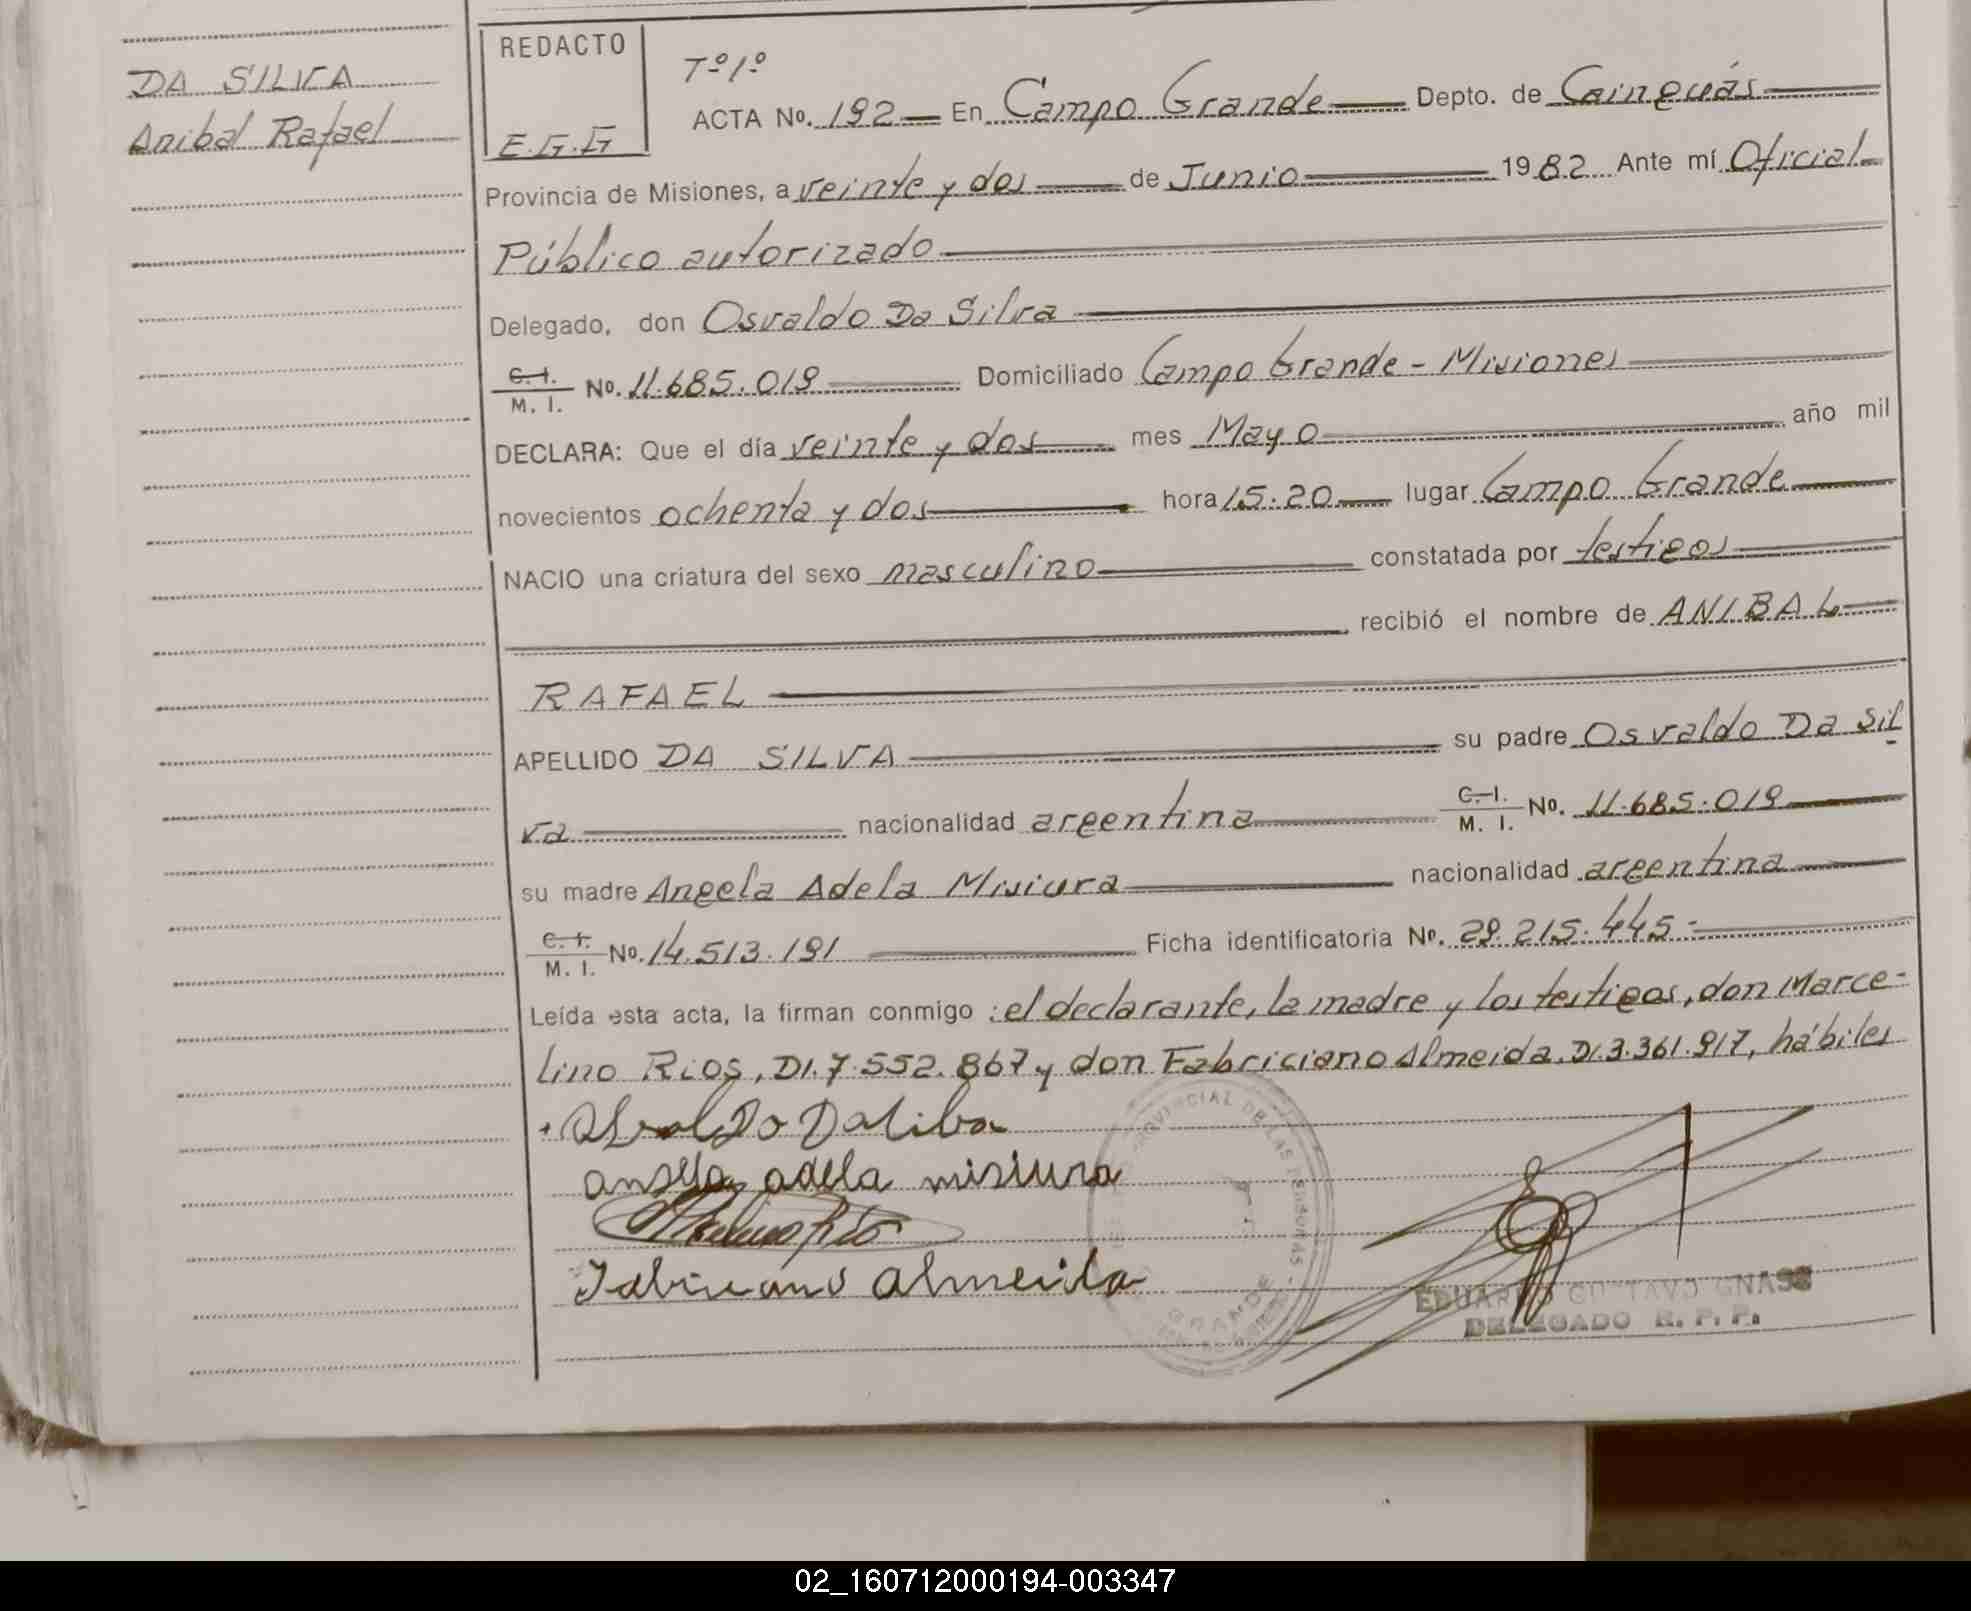 DA SILVA
Anibal Rafael
REDACTO
E.G.G
Tº1º
ACTA Nº. 192 En Campo Grande Depto. de Cainguás
Provincia de Misiones, a veinte y dos de Junio 1982 Ante mí Oficial
Público autorizado
Delegado, don Osvaldo Da Silva
C. I. / M. I. Nº. 11.685.019 Domiciliado Campo Grande - Misiones
DECLARA: Que el día veinte y dos mes Mayo año mil
novecientos ochenta y dos hora 15.20 lugar Campo Grande
NACIO una criatura del sexo masculino constatada por testigos
recibió el nombre de ANIBAL
RAFAEL
APELLIDO DA SILVA su padre Osvaldo Da Sil
va nacionalidad argentina C. I. / M. I. Nº. 11.685.019
su madre Angela Adela Misiura nacionalidad argentina
C. I. / M. I. Nº. 14.513.191 Ficha identificatoria Nº. 29.215.445-
Leída esta acta, la firman conmigo : el declarante, la madre y los testigos, don Marce-
lino Rios, DI.7.552.867 y don Fabriciano Almeida. DI.3.361.917, hábiles
angela adela misiura
almeida
PROVINCIAL DE LAS PERSONAS
GRANDE
EDUARDO GUSTAVO GNASS
DELEGADO R. P. P.
02_160712000194-003347